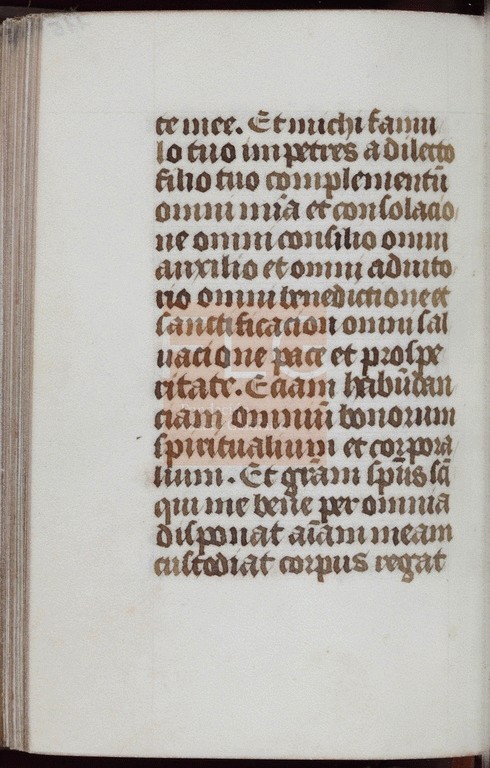 te mee. Et michi famu
lo tuo impetres a dilecto
filio tuo complementū
omni mīa et consolacio
ne omni consilio omni
auxilio et omni adiuto
rio omni benedictione et
sanctificacion omni sal
uacione pace et prospe
ritate. Eciam habūdan
ciam omniū bonorum
spiritualium et corpora
lium. Et grām sp̄us sc̄i
qui me bene per omnia
disponat aīam meam
custodiat corpus regat